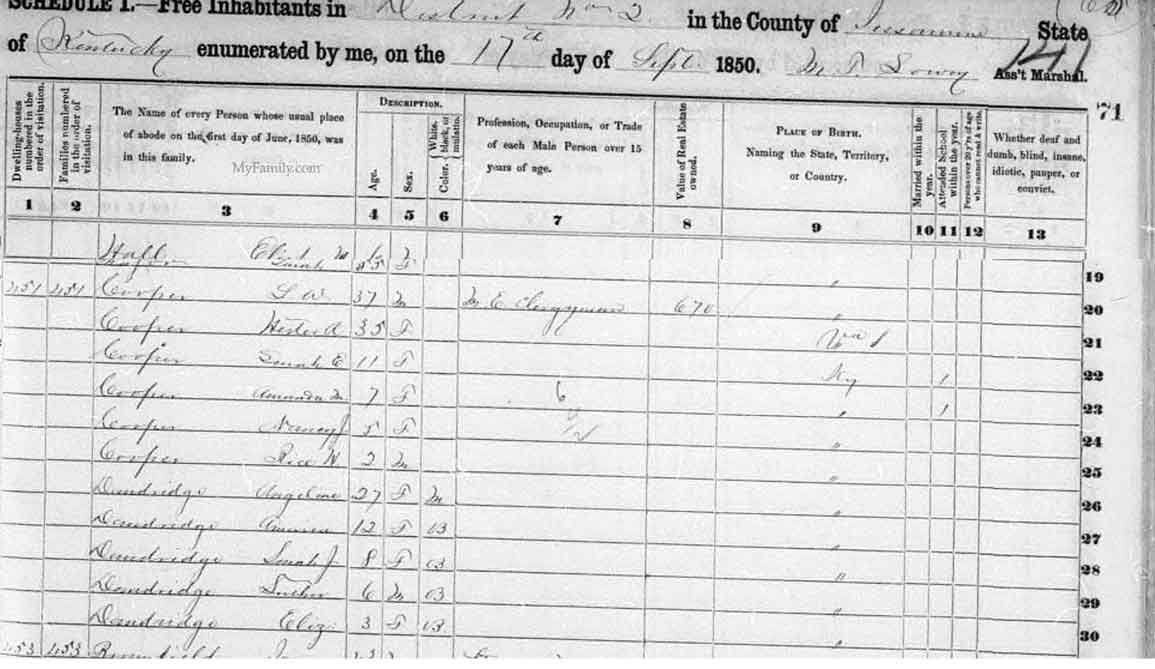 SCHEDULE I.—Free Inhabitants in District No 2 in the County of State
of Kentucky enumerated by me, on the 17th day of Sept 1850. Ass't Marshal.
141
71
Dwelling-houses numbered in the order of visitation.
Families numbered in the order of visitation.
The Name of every Person whose usual place of abode on the first day of June, 1850, was in this family.
MyFamily.com
DESCRIPTION.
Age.
Sex.
Color, White, black, or mulatto.
Profession, Occupation, or Trade of each Male Person over 15 years of age.
Value of Real Estate owned.
PLACE OF BIRTH. Naming the State, Territory, or Country.
Married within the year.
Attended School within the year.
Persons over 20 y'rs of age who cannot read & write.
Whether deaf and dumb, blind, insane, idiotic, pauper, or convict.
1 2 3 4 5 6 7 8 9 10 11 12 13
19
451 451 Cooper S W. 37 M M E Clergyman 670 " 20
Cooper Hester A 35 F Va 1 21
Cooper Sarah E 11 F Ky 1 22
Cooper Amanda M 7 F 6 " 1 23
Cooper Nancy J 5 F " 24
Cooper Rice N 2 M " 25
Dandridge Angeline 27 F M " 26
Dandridge 12 F B " 27
Dandridge Sarah J 8 F B " 28
Dandridge 6 M B " 29
Dandridge Eliz 3 F B " 30
453 453